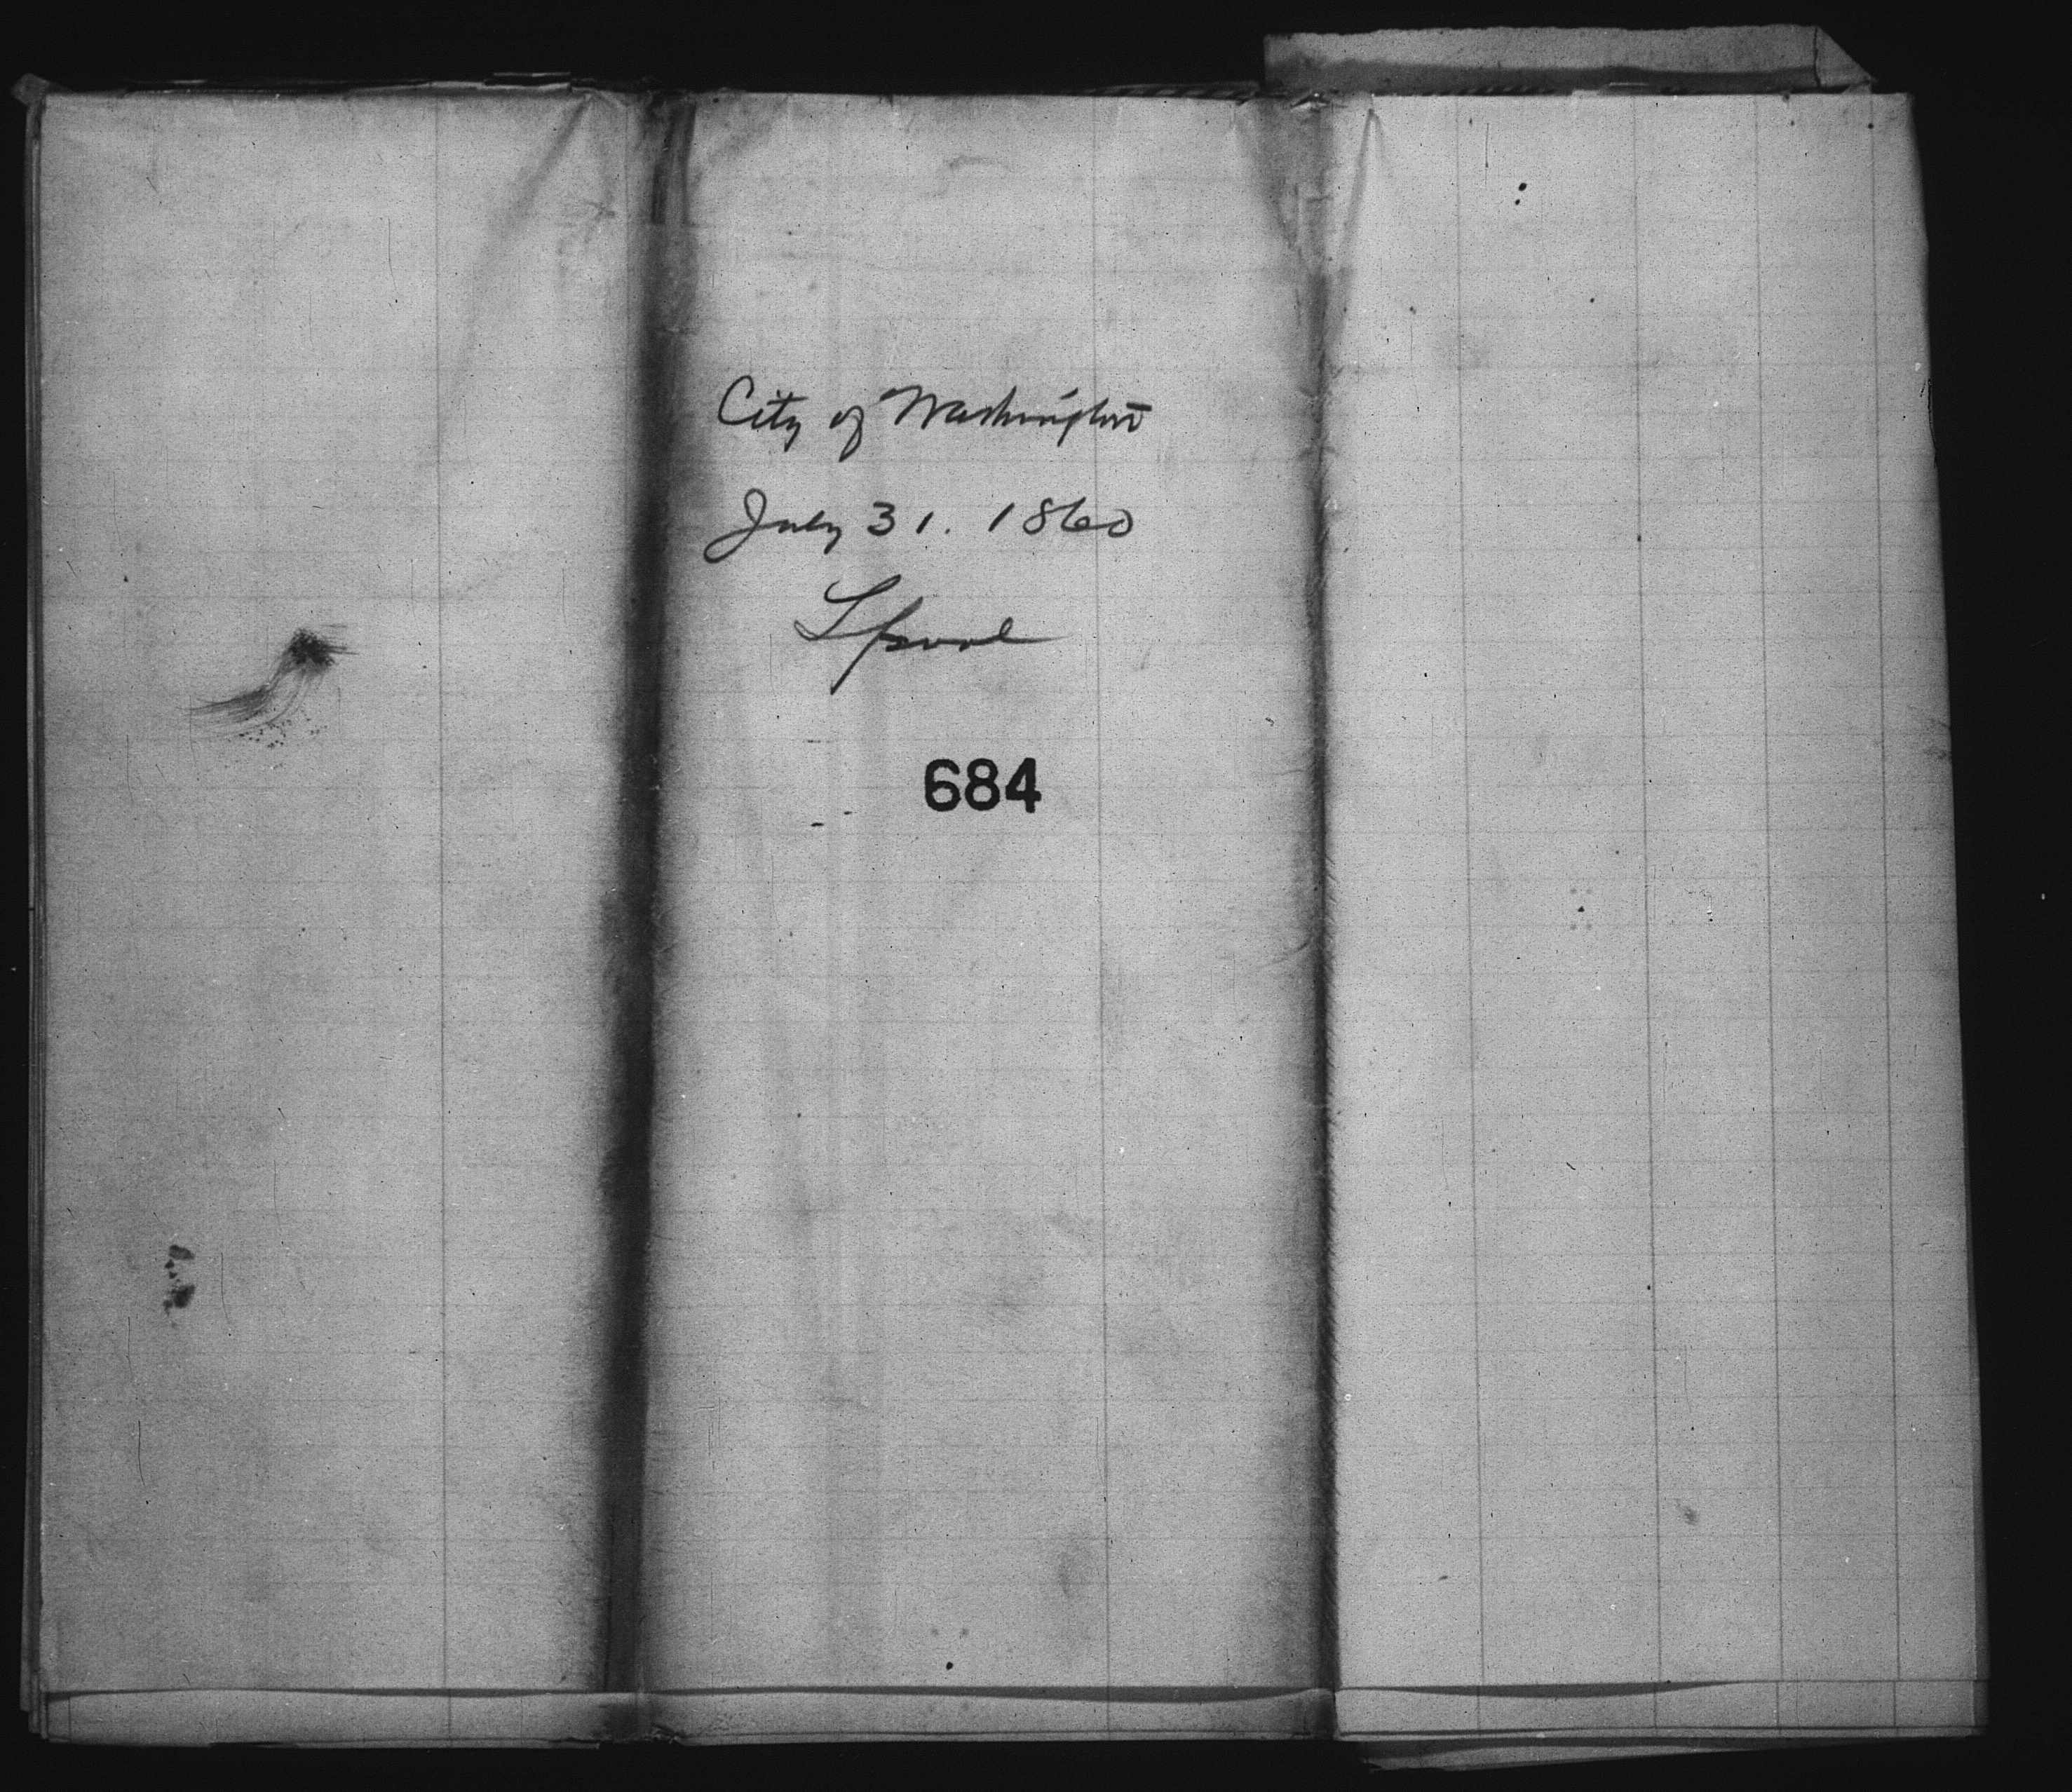 City of Washington
July 31. 1860
Lpool
684